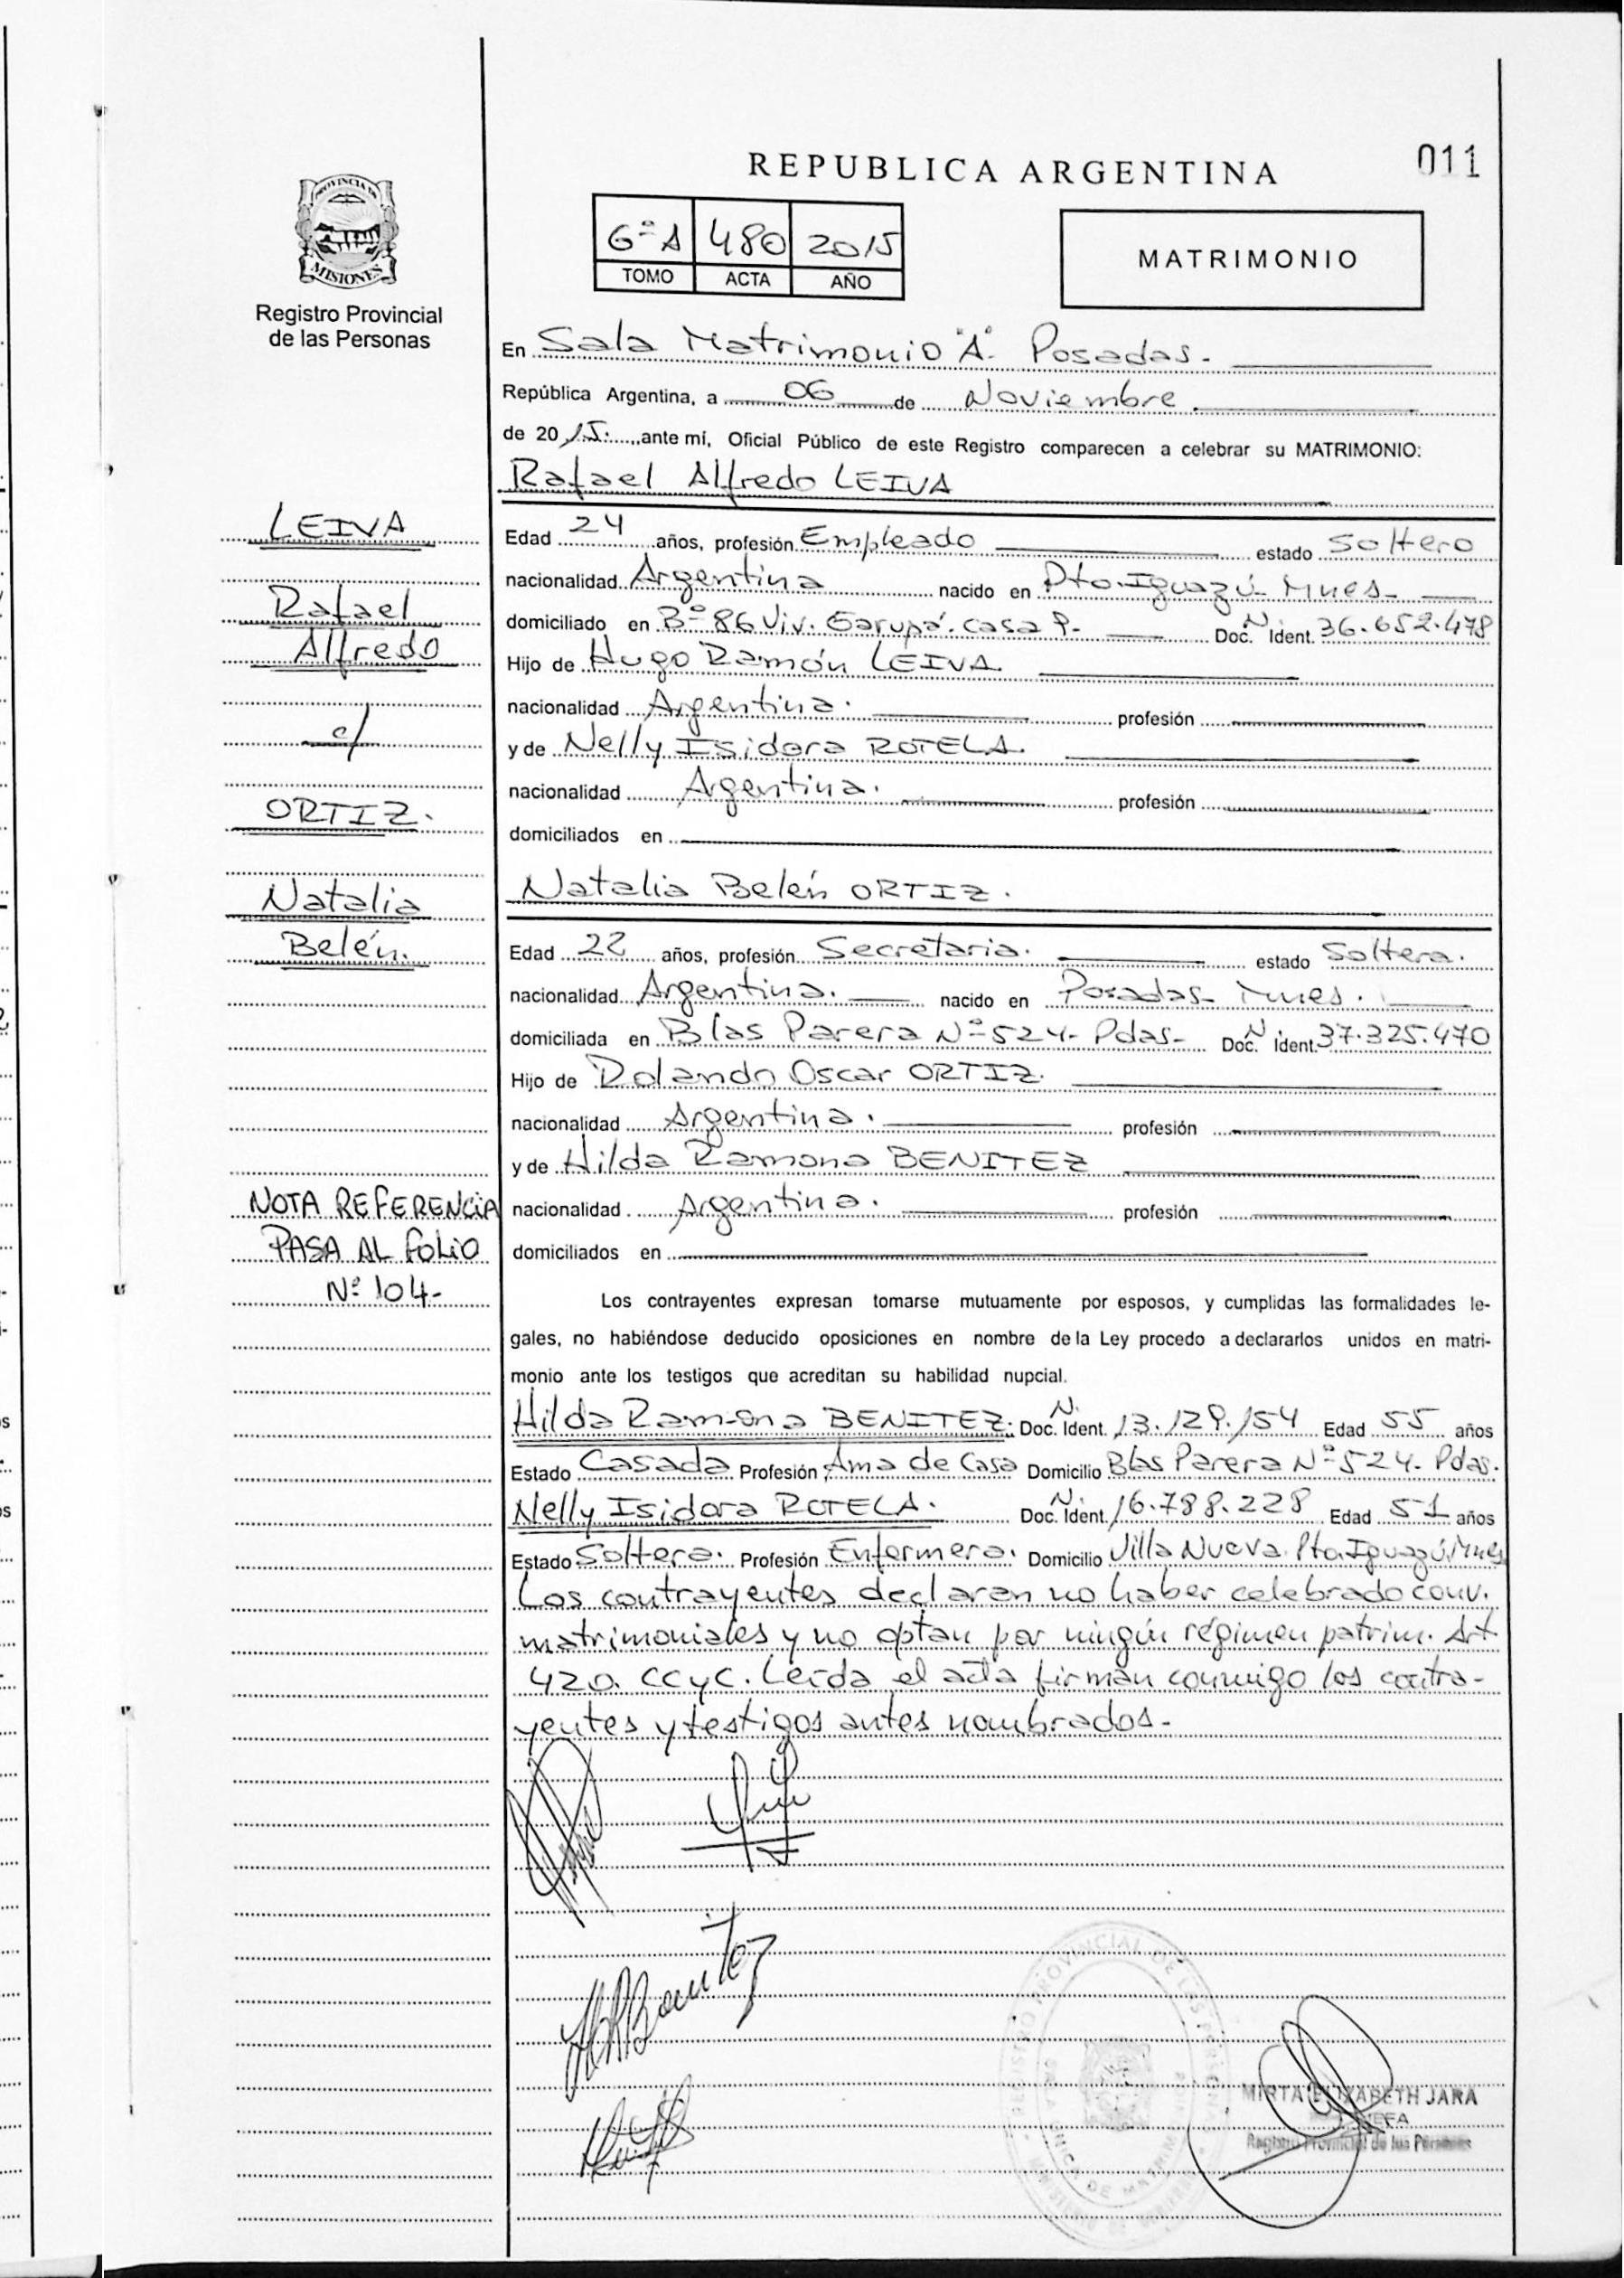 REPUBLICA ARGENTINA
011
PROVINCIA DE
MISIONES
Registro Provincial
de las Personas
6ºA 480 2015
TOMO ACTA AÑO
MATRIMONIO
En Sala Matrimonio "A". Posadas.
República Argentina, a 06 de Noviembre
de 2015. ante mí, Oficial Público de este Registro comparecen a celebrar su MATRIMONIO:
Rafael Alfredo LEIVA
Edad 24 años, profesión Empleado estado Soltero
nacionalidad Argentina nacido en Pto. Iguazú- Mnes-
domiciliado en Bº 86 Viv. Garupá. casa 9. Doc. N. Ident. 36.652.478
Hijo de Hugo Ramón LEIVA
nacionalidad Argentina. profesión
y de Nelly Isidora ROTELA.
nacionalidad Argentina. profesión
domiciliados en
Natalia Belén ORTIZ.
Edad 22 años, profesión Secretaria. estado Soltera.
nacionalidad Argentina. nacido en Posadas- Mnes.
domiciliada en Blas Parera Nº 524- Pdas- Doc. N. Ident. 37.325.470
Hijo de Rolando Oscar ORTIZ.
nacionalidad Argentina. profesión
y de Hilda Ramona BENITEZ
nacionalidad Argentina. profesión
domiciliados en
Los contrayentes expresan tomarse mutuamente por esposos, y cumplidas las formalidades le-
gales, no habiéndose deducido oposiciones en nombre de la Ley procedo a declararlos unidos en matri-
monio ante los testigos que acreditan su habilidad nupcial.
Hilda Ramona BENITEZ. Doc. N. Ident. 13.129.154 Edad 55 años
Estado Casada Profesión Ama de Casa Domicilio Blas Parera Nº 524- Pdas.
Nelly Isidora ROTELA. Doc. N. Ident. 16.788.228 Edad 51 años
Estado Soltera. Profesión Enfermera. Domicilio Villa Nueva. Pto. Iguazú. Mnes
Los contrayentes declaran no haber celebrado conv.
matrimoniales y no optan por ningún régimen patrim. Art.
420. CCyC. Leída el acta firman conmigo los contra-
yentes y testigos antes nombrados-
LEIVA
Rafael
Alfredo
c/
ORTIZ.
Natalia
Belén.
NOTA REFERENCIA
PASA AL FOLIO
Nº 104-
HRBenitez
REGISTRO PROVINCIAL DE LAS PERSONAS
MIRTA ELIZABETH JARA
JEFA
Registro Provincial de las Personas